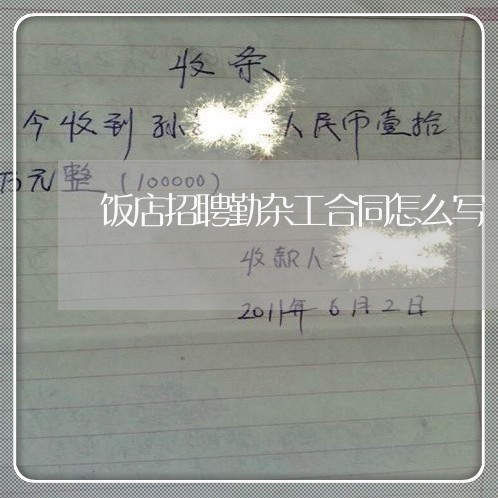 收条
今收到孙 人民币壹拾
万元整（100000）
饭店招聘勤杂工合同怎么写
收款人
2011年6月2日